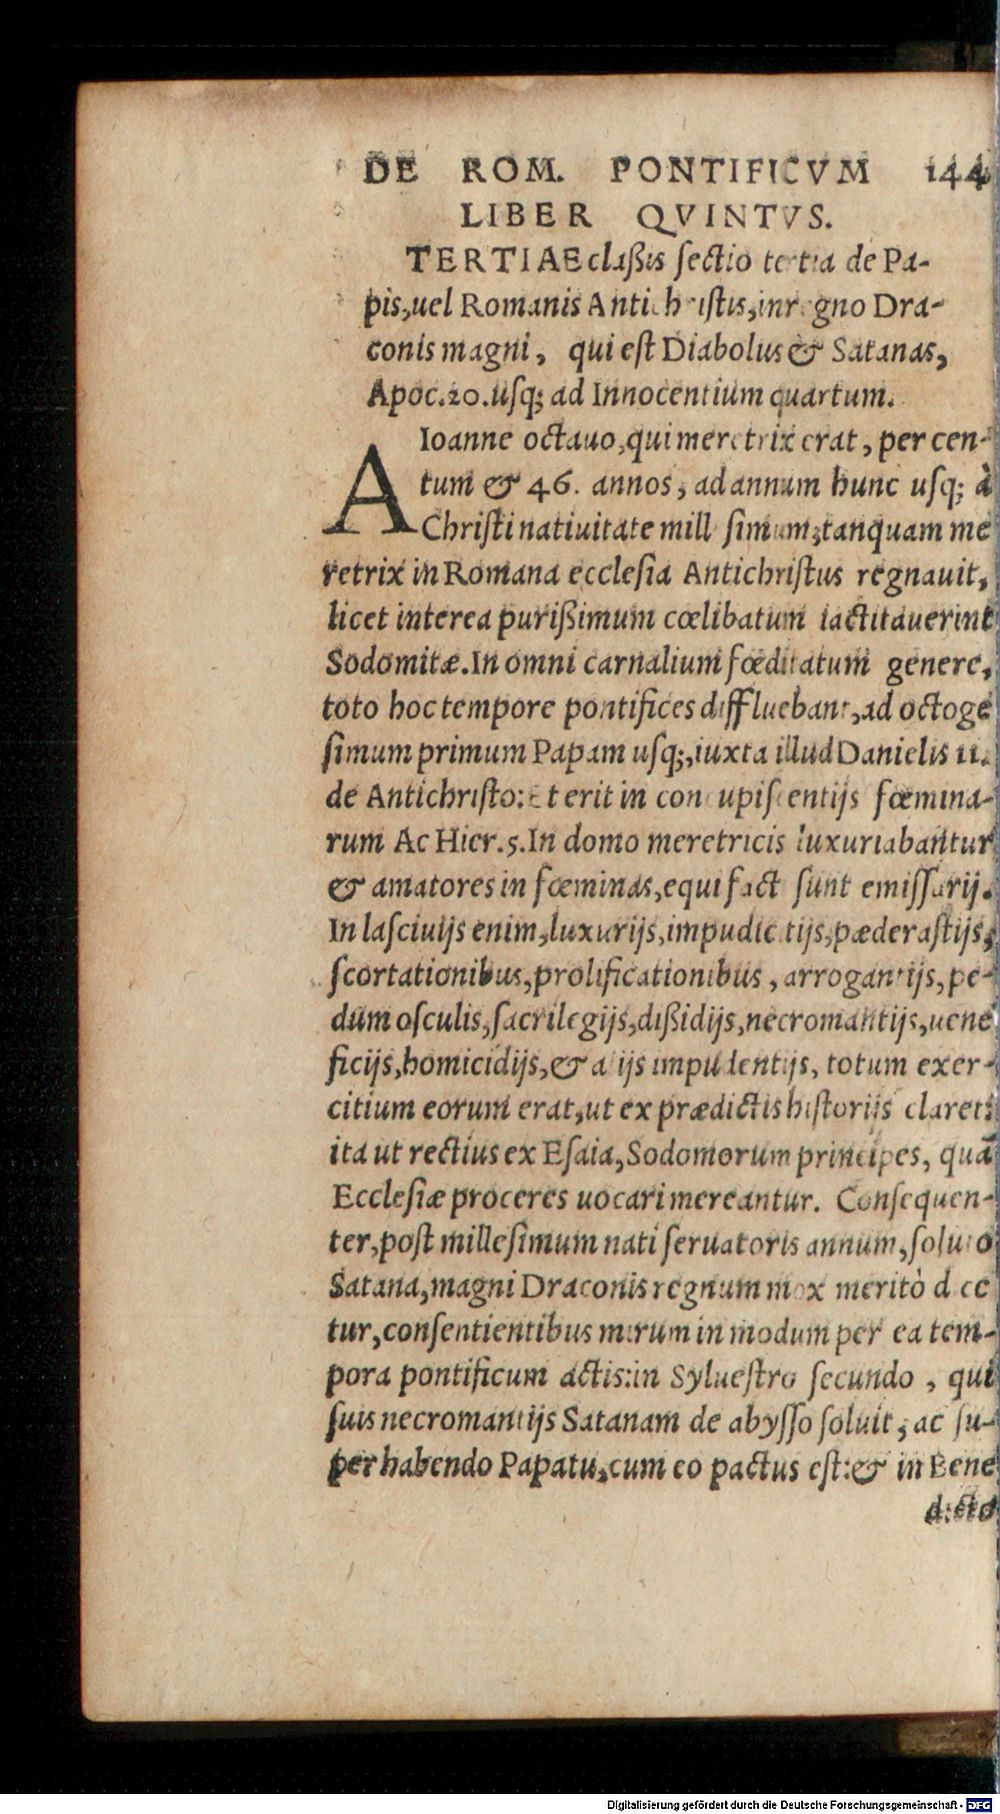 DE ROM. PONTIFICVM 144
LIBER QVINTVS.
TERTIAE claßis sectio tertia de Pa-
pis,uel Romanis Antichristis,in regno Dra-
conis magni, qui est Diabolus & Satanas,
Apoc.20.usq; ad Innocentium quartum.
A Ioanne octauo,qui meretrix erat, per cen-
tum & 46. annos, ad annum hunc usq; à
Christi natiuitate mill simum,tanquam me
retrix in Romana ecclesia Antichristus regnauit,
licet interea purißimum cœlibatum iactitauerint
Sodomitæ.In omni carnalium fœditatum genere,
toto hoc tempore pontifices diffluebant,ad octoge
simum primum Papam usq;,iuxta illud Danielis 11.
de Antichristo: Et erit in concupiscentijs fœmina-
rum Ac Hier.5.In domo meretricis luxuriabantur
& amatores in fœminas,equi fact sunt emissarij.
In lasciuijs enim,luxurijs,impudic tijs,pæderastijs,
scortationibus,prolificationibus, arrogantijs,pe-
dum osculis,sacrilegijs,dißidijs,necromantijs,uene
ficijs,homicidijs,& alijs impudentijs, totum exer-
citium eorum erat,ut ex prædictis historijs claret:
ita ut rectius ex Esaia,Sodomorum principes, quã
Ecclesiæ proceres uocari mereantur. Consequen-
ter,post millesimum nati seruatoris annum,soluto
Satana,magni Draconis regnum mox meritò d ce
tur,consentientibus mirum in modum per ea tem-
pora pontificum actis:in Syluestro secundo , qui
suis necromantijs Satanam de abysso soluit, ac su-
per habendo Papatu,cum eo pactus est:& in Bene
dicto
Digitalisierung gefördert durch die Deutsche Forschungsgemeinschaft - DFG